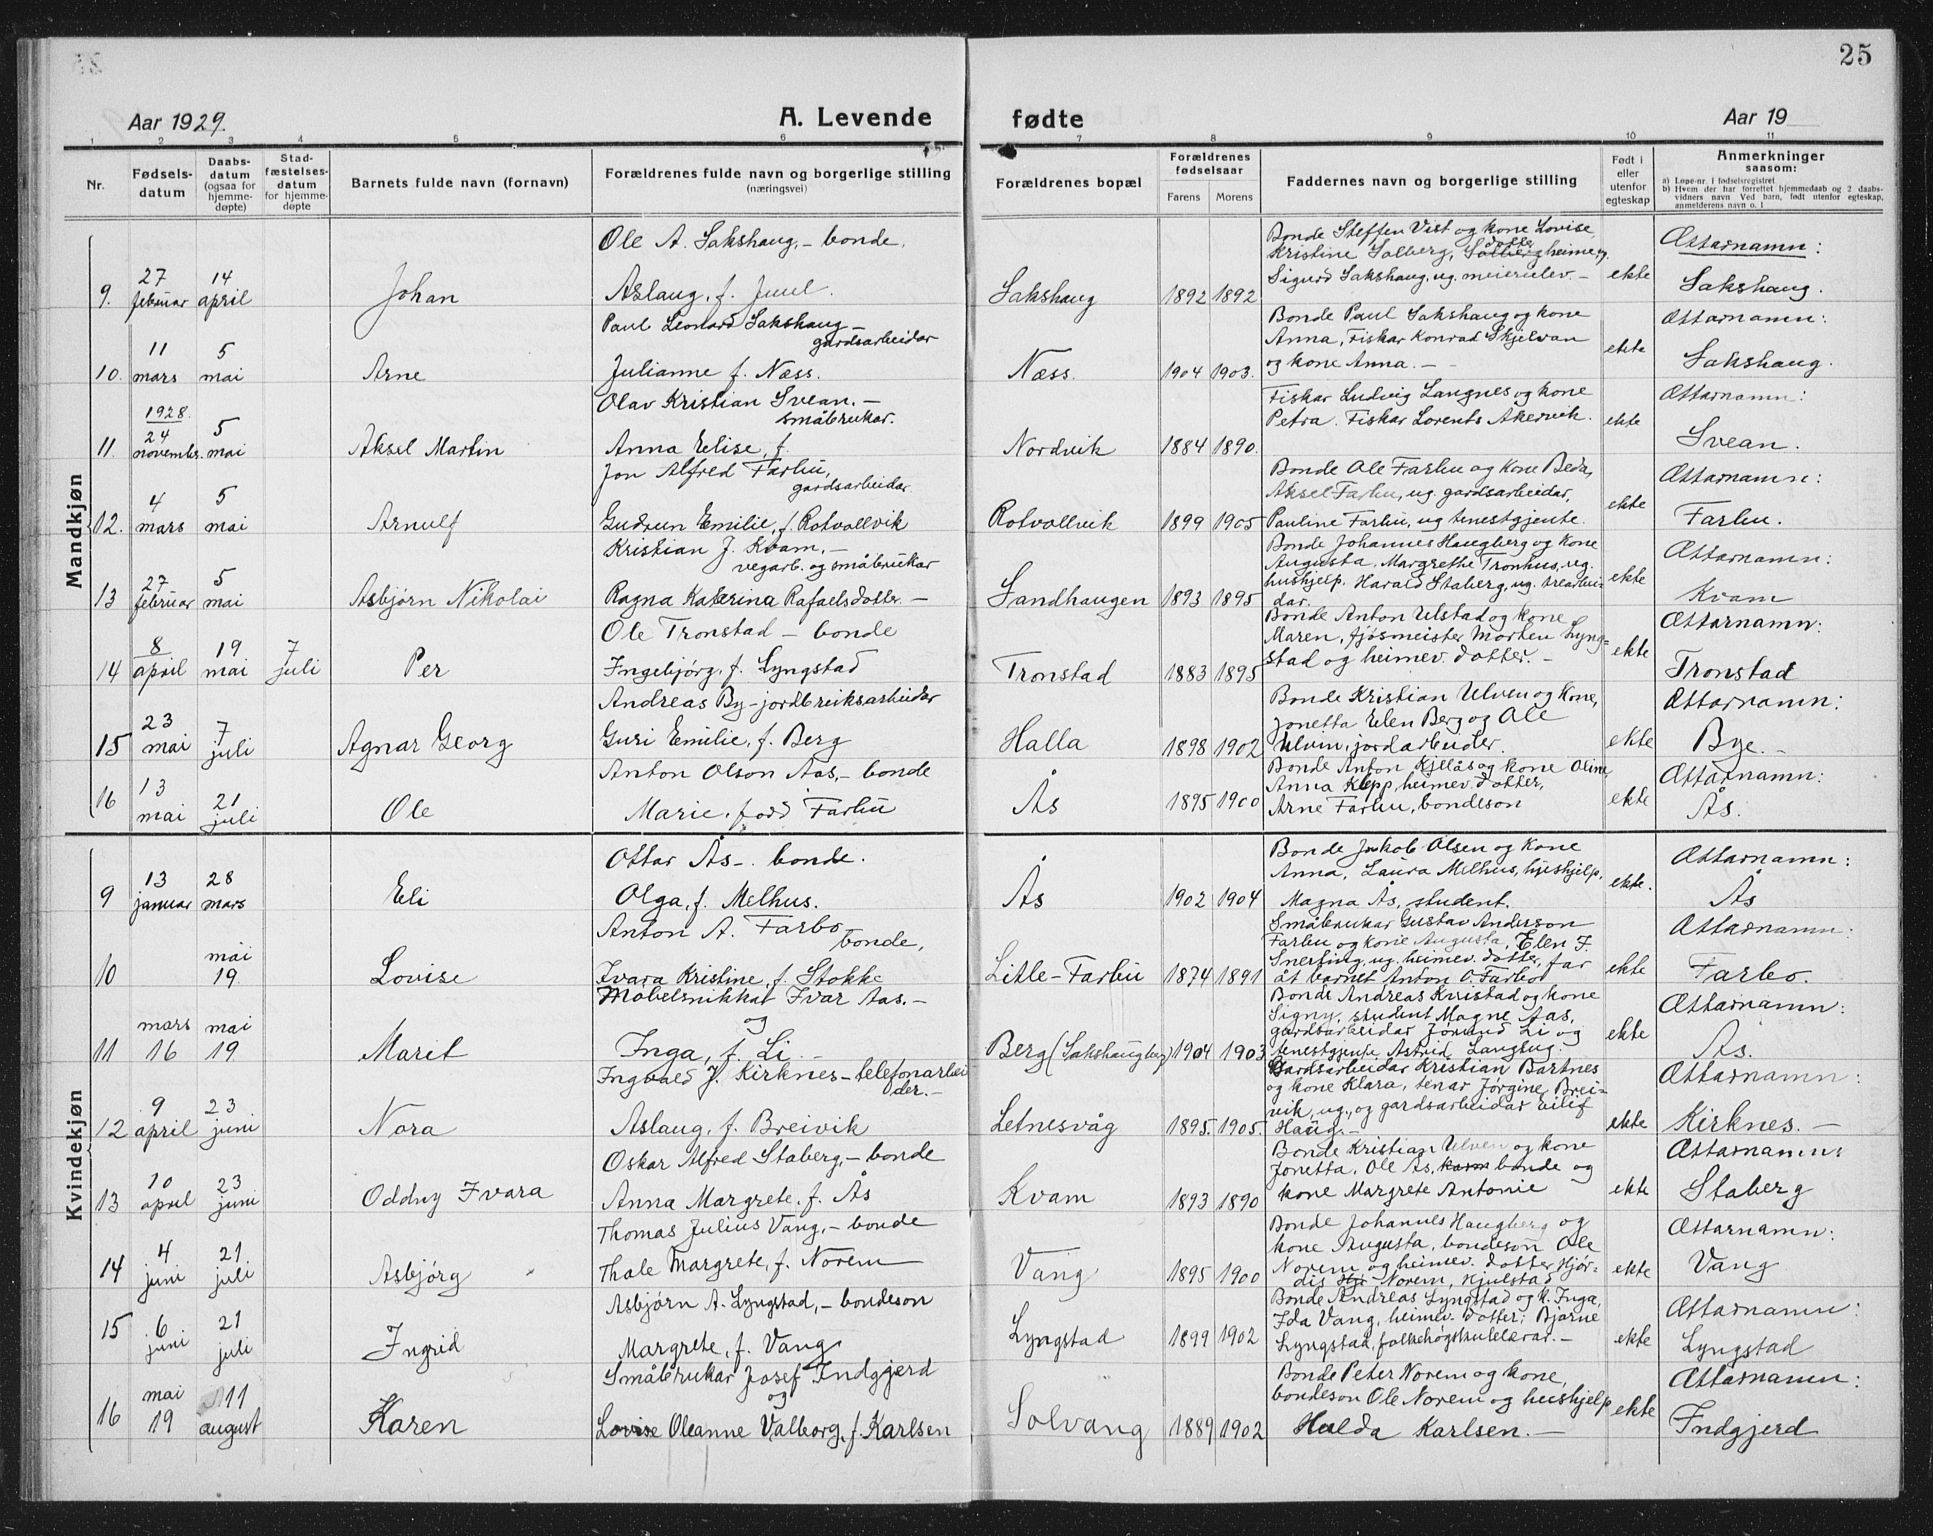 25
Aar 1929.
A. Levende
fødte
Aar 19
1 2 3 4 5 6 7 8 9 10 11
Nr.
Fødsels-
datum
Daabs-
datum
(ogsaa for
hjemme-
døpte)
Stad-
fæstelses-
datum
for hjemme-
døpte
Barnets fulde navn (fornavn)
Forældrenes fulde navn og borgerlige stilling
(næringsvei)
Forældrenes bopæl
Forældrenes
fødselsaar
Farens Morens
Faddernes navn og borgerlige stilling
Født i
eller
utenfor
egteskap
Anmerkninger
saasom:
a) Løpe-nr. i fødselsregistret
b) Hvem der har forrettet hjemmedaab og 2 daabs-
vidners navn Ved barn, født utenfor egteskap,
anmelderens navn o. l
Mandkjøn
9. 27 februar 14 april Johan
Ole A. Sakshaug, – bonde.
Aslaug, f. Juul.
Sakshaug 1892 1892
Bonde Steffen Vist og kone Lovise,
Kristine Solberg, Solberg heimev. dotter
Sigurd Sakshaug, ug. meierielev. –
ekte
Ættarnamn:
Sakshaug.
10. 11 mars 5 mai Arne
Paul Leonard Sakshaug –
gardsarbeidar
Julianne f. Næss.
Næss. 1904 1903.
Bonde Paul Sakshaug og kone
Anna, Fiskar Konrad Skjelvan
og kone Anna. –
ekte
Ættarnamn:
Sakshaug.
11. 1928. 24 november. 5 mai Aksel Martin
Olav Kristian Svean. –
småbrukar.
Anna Elise, f.
Nordvik 1884 1890.
Fiskar Ludvig Langnes og kone
Petra. Fiskar Lorents Akervik.
ekte
Ættarnamn:
Svean.
12. 4 mars 5 mai Arnulf
Jon Alfred Farbu,
gardsarbeidar
Gudrun Emilie, f. Rotvollvik
Rotvollvik 1899 1905
Bonde Ole Farbu og kone Beda,
Aksel Farbu, ug. gardsarbeidar,
Pauline Farbu, ug tenestgjente.
ekte
Ættarnamn:
Farbu.
13 27 februar 5 mai Asbjørn Nikolai
Kristian J. Kvam, –
vegarb. og småbrukar
Ragna Katerina Rafaelsdotter. –
Sandhaugen 1893 1895
Bonde Johannes Haugberg og kone
Augusta, Margrethe Tronhus, ug.
hushjelp. Harald Staberg, ug. trearbei-
dar.
ekte
Ættarnamn:
Kvam
14 8 april 19 mai 7 juli Per
Ole Tronstad – bonde
Ingebjørg, f. Lyngstad
Tronstad 1883 1895
Bonde Anton Ulstad og kone
Maren, fjøsmeister Morten Lyng-
stad og heimev. dotter. –
ekte
Ættarnamn:
Tronstad
15 23 mai 7 juli Agnar Georg
Andreas By – jordbreiksarbeidar
Guri Emilie, f. Berg
Halla 1898 1902
Bonde Kristian Ulven og kone,
Jonetta Elen Berg og Ole
Ulvin, jordarbeider.
ekte
Ættarnamn:
Bye. –
16 13 mai 21 juli Ole
Anton Olson Aas, – bonde
Marie, fødd Farbu
Ås 1895 1900
Bonde Anton Kjellås og kone Oline,
Anna Klepp, heimev. dotter,
Arne Farbu, bondeson
ekte
Ættarnamn:
Ås.
Kvindekjøn
9 13 januar 28 mars Eli
Ottar Ås –. bonde.
Olga, f. Melhus.
Ås 1902 1904
Bonde Jakob Olsen og kone
Anna, Laura Melhus, hushjelp,
Magna Ås, student.
ekte.
Ættarnamn:
Ås
10 mai 19. Lovise
Anton A. Farbo
bonde,
Ivara Kristine, f. Stokke
Litle-Farbu 1874 1891
Småbrukar Gustav Anderson
Farbu og kone Augusta, Elen F.
Snerting, ug. heimev. dotter, far
åt barnet Anton O. Farbo
ekte
Ættarnamn:
Farbo.
11 mars 16 mai 19. Marit
Møbelsnikkar Ivar Aas. –
og
Inga, f. Li. –
Berg (Sakshaugberg) 1904 1903
Bonde Andreas Kvistad og kone
Signy, student Magne Aas,
gardsarbeidar Jørund Li og
tenestgjente Astrid Langlug.
ekte
Ættarnamn:
Ås.
12 9 april 23 juni Nora
Ingvald J. Kirknes – telefonarbei
der. –
Aslaug, f. Breivik
Letnesvåg 1895. 1905.
Gardsarbeidar Kristian Bartnes
og kone Klara, tenar Jørgine Brei-
vik, ug., og gardsarbeidar Eilif
Haug. –
ekte
Ættarnamn:
Kirknes. –
13 10 april 23 juni Oddny Ivara
Oskar Alfred Staberg, – bonde
Anna Margrete, f. Ås
Kvam 1893 1890
Bonde Kristian Ulven og kone
Jonetta, Ole Ås, bonde og
kone Margrete Antonie
ekte
Ættarnamn:
Staberg
14 4 juni 21 juli Asbjørg
Thomas Julius Vang, – bonde
Thale Margrete, f. Norem
Vang 1895 1900
Bonde Johannes Haugberg og
kone Augusta, bondeson Ole
Norem og heimev. dotter Hjør-
dis Norem, Kjulstad
ekte
Ættarnamn:
Vang
15 6 juni 21 juli Ingrid
Asbjørn A. Lyngstad, – bondeson
Margrete, f. Vang
Lyngstad 1899 1902
Bonde Andreas Lyngstad og k. Inga,
Ida Vang, heimev. dotter; Bjarne
Lyngstad, folkehøgskulelærar. –
ekte
Ættarnamn:
Lyngstad
16 mai 19 11 august Karen
Småbrukar Josef Indgjerd
og
Lovise Oleanne Valborg, f. Karlsen
Solvang 1889 1902
Bonde Peter Norem og kone,
bondeson Ole Norem og hushjelp
Hulda Karlsen. –
ekte
Ættarnamn:
Indgjerd